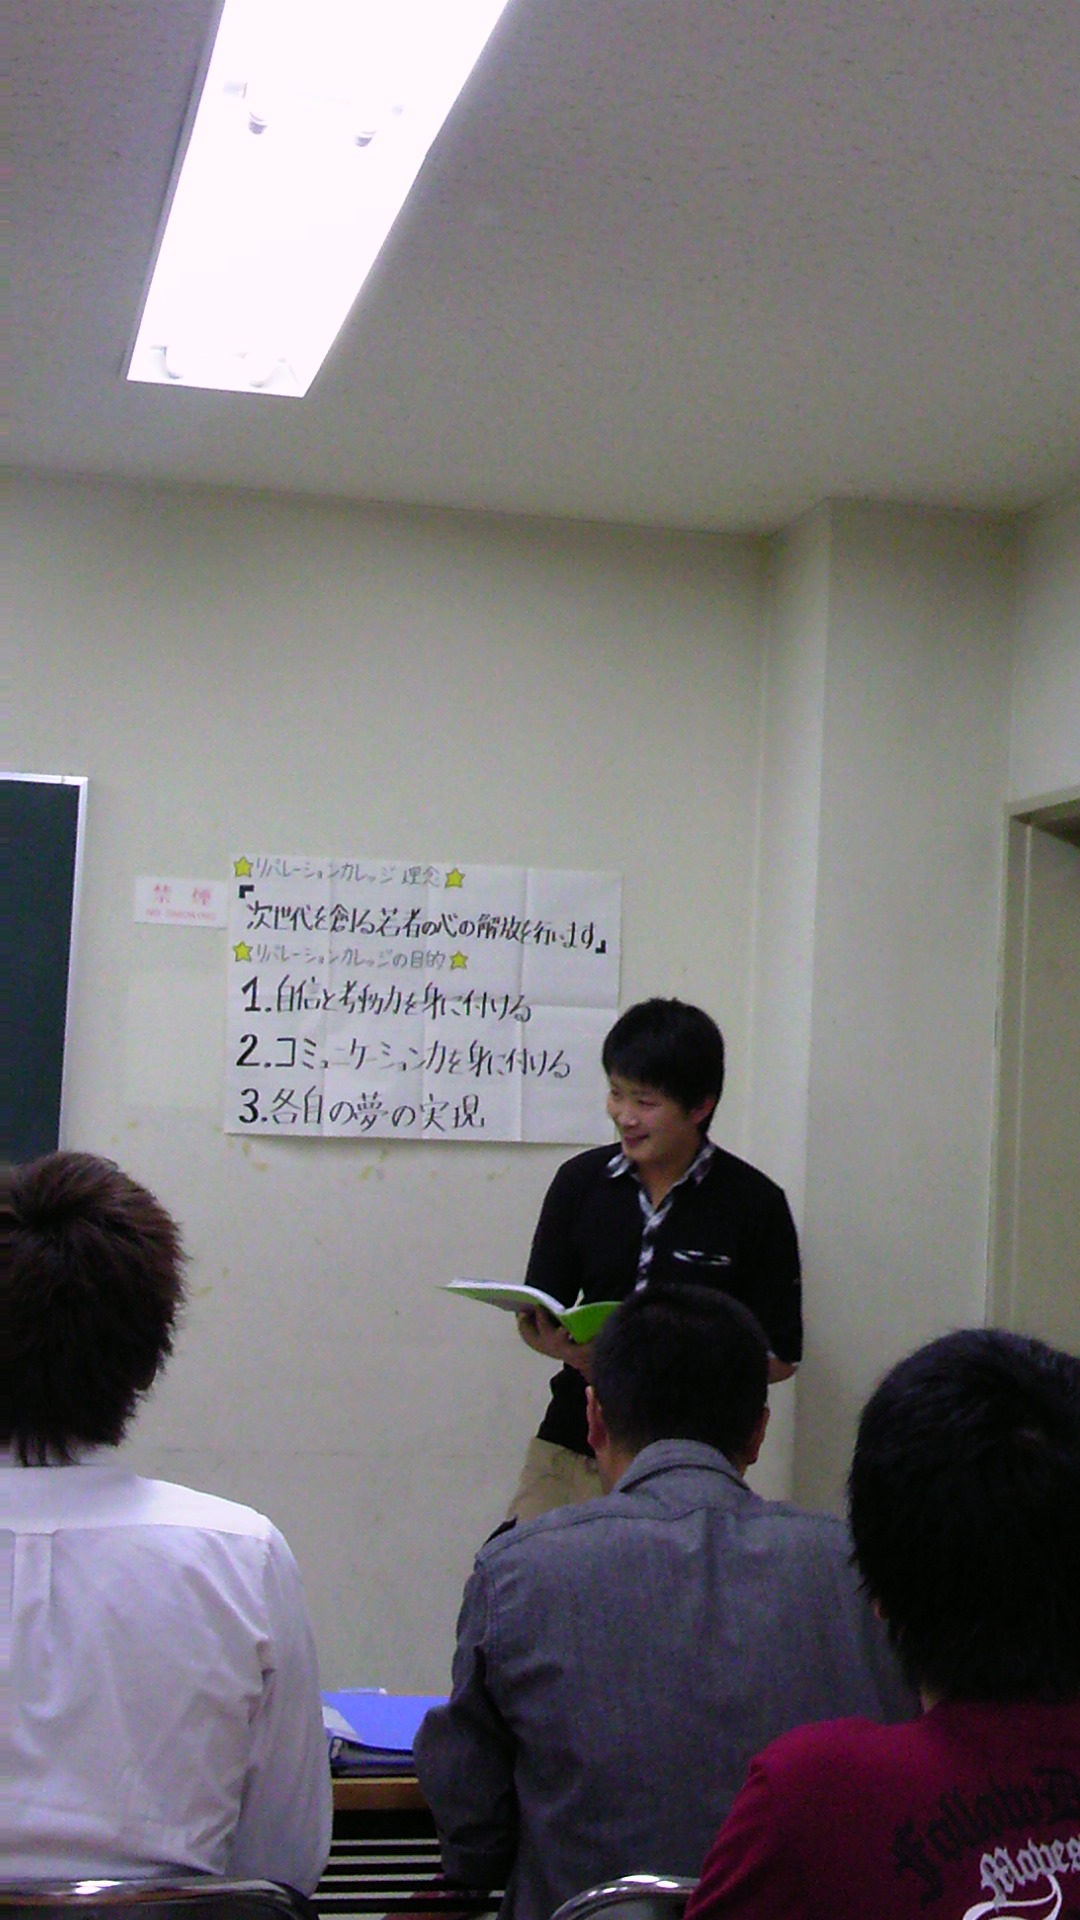 禁煙
NO SMOKING
リバレーションカレッジ 理念
『次世代を創る若者の心の解放を行います』
リバレーションカレッジの目的
1.自信と考動力を身に付ける
2.コミュニケーション力を身に付ける
3.各自の夢の実現
Follow